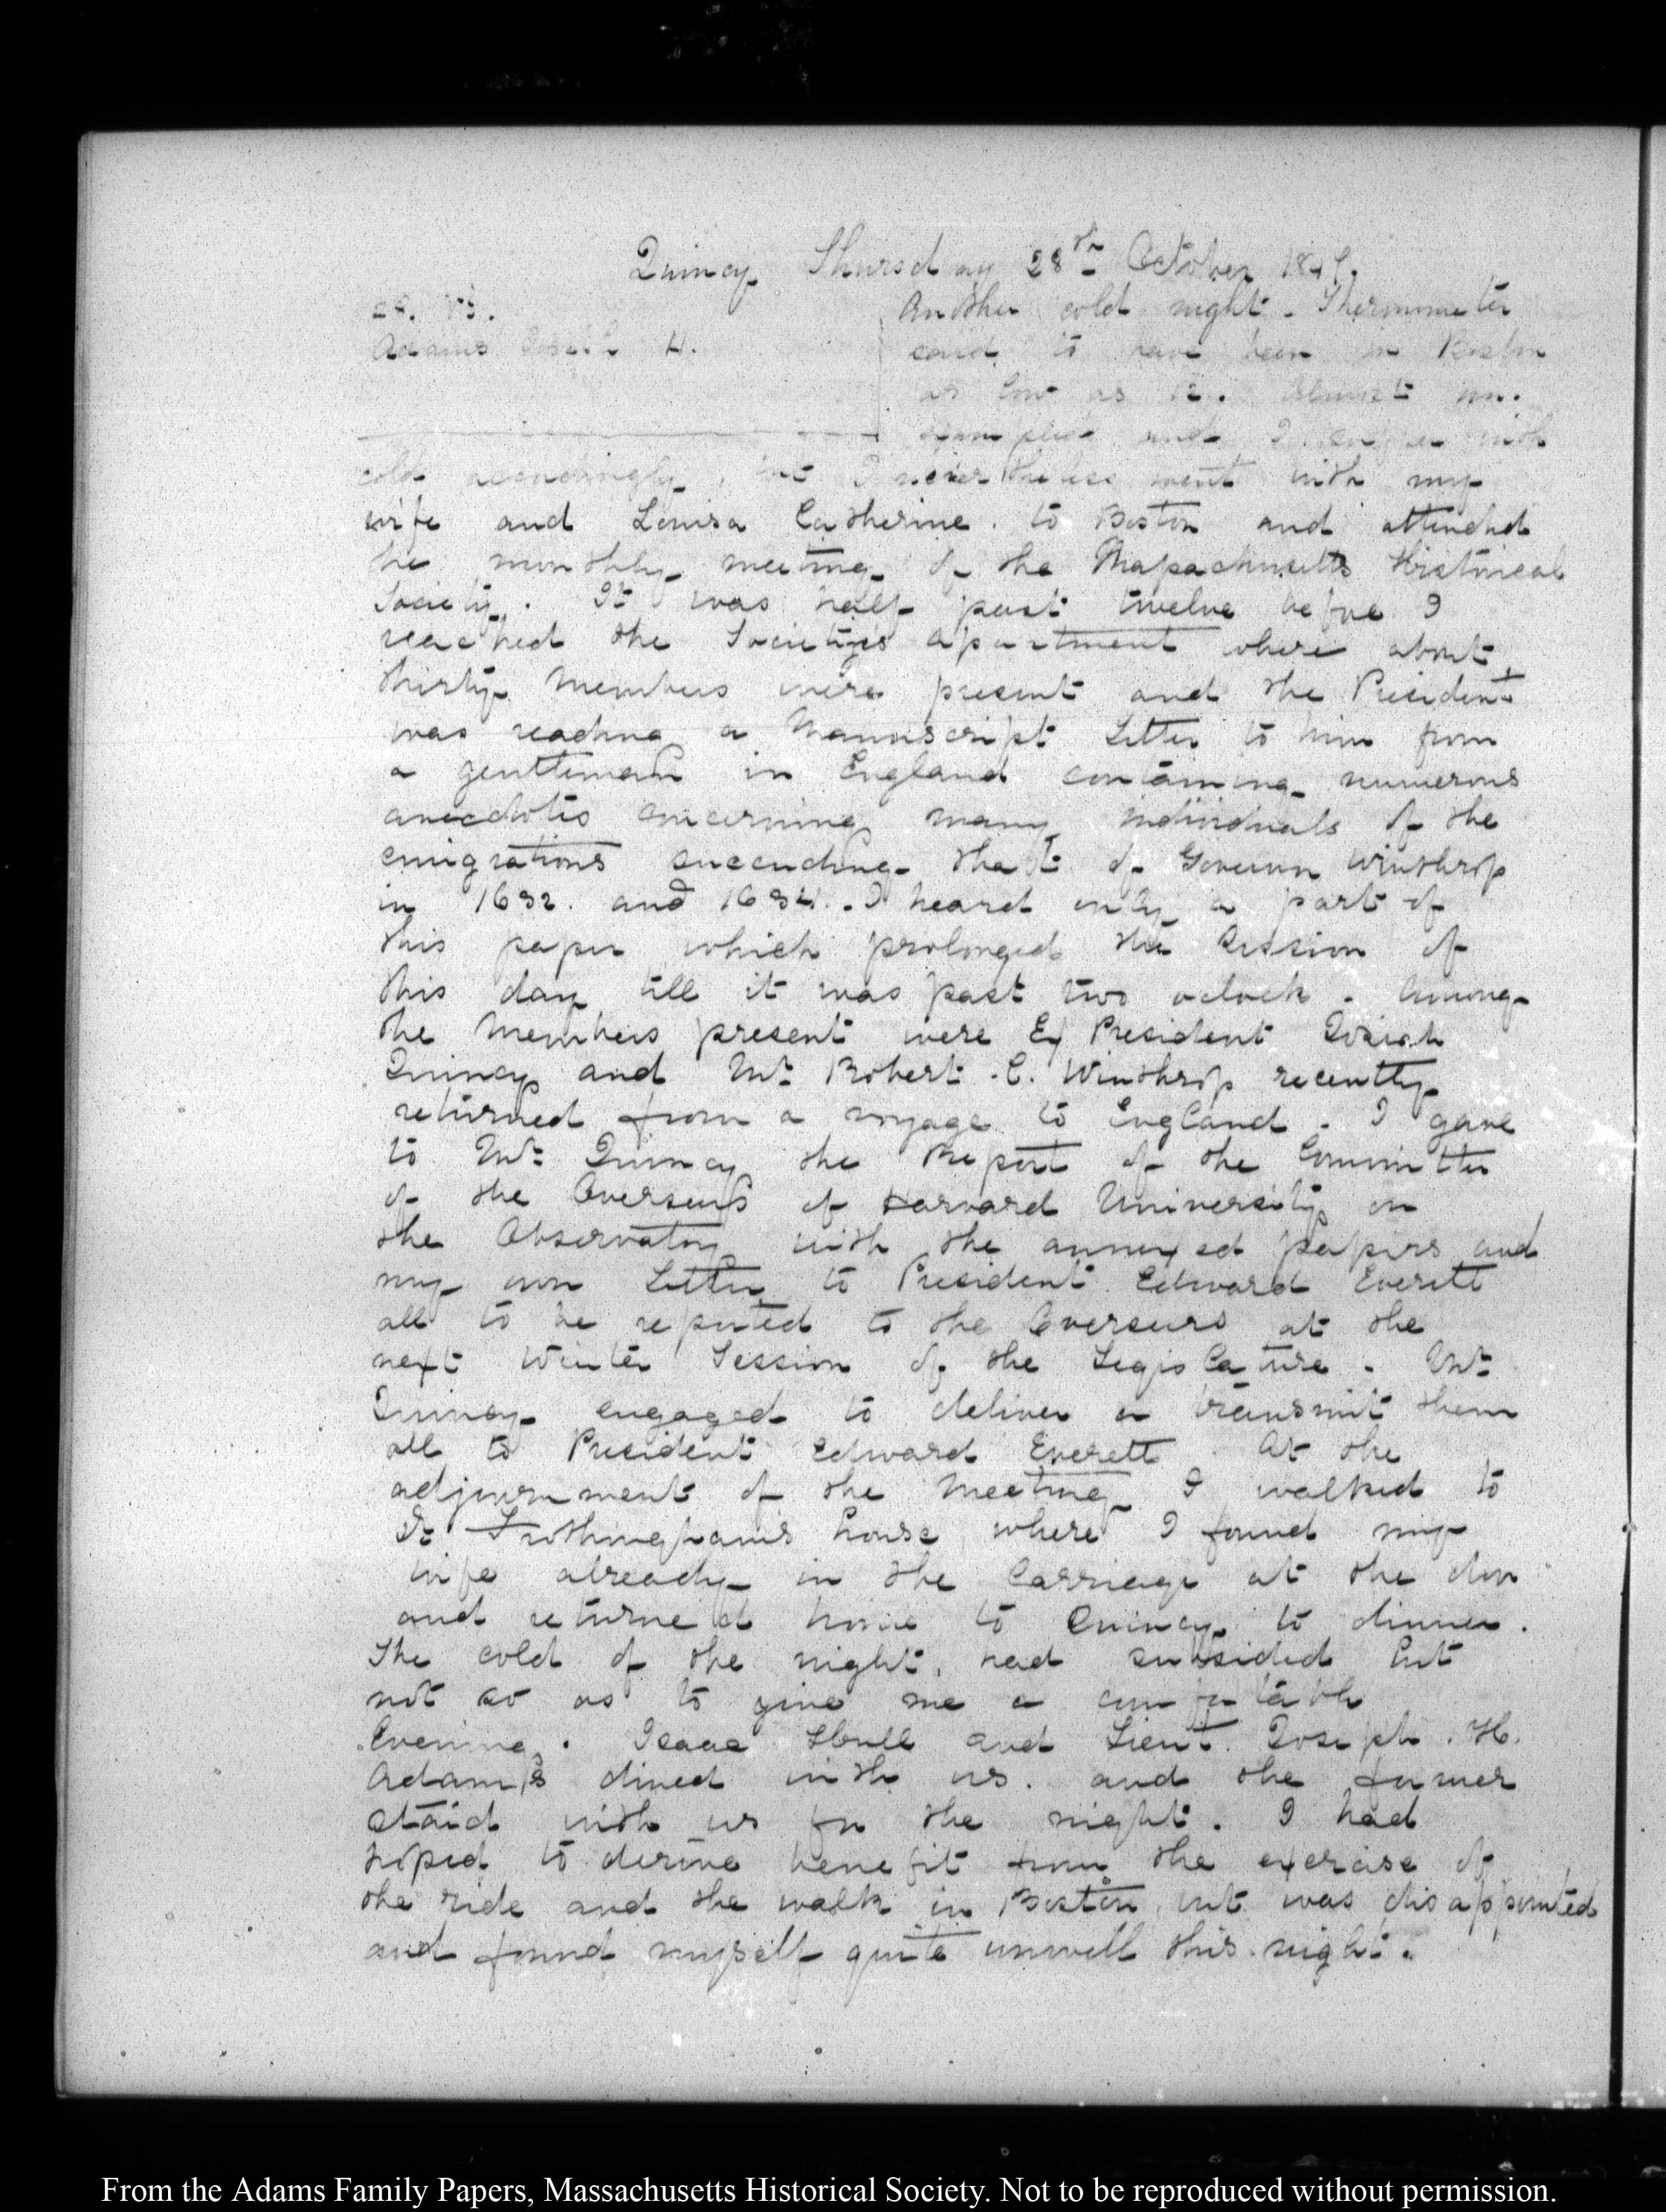 Quincy Thursday 28th October 1847.
28. VI.
Adams Joseph H.
Another cold night. Thermometer
said to have been in Boston
as low as 12. Almost un-
exampled and I suffer with
cold accordingly, but I nevertheless went with my
wife and Louisa Catherine to Boston and attended
the monthly meeting of the Massachusetts Historical
Society. It was half past twelve before I
reached the Society's apartment where about
thirty Members were present and the President
was reading a Manuscript Letter to him from
a gentleman in England containing numerous
anecdotes concerning many individuals of the
emigrations succeeding that of Governor Winthrop
in 1632. and 1634. I heard only a part of
this paper which prolonged the Session of
this day till it was past two o'clock. Among
the Members present were Ex President Josiah
Quincy and Mr. Robert C. Winthrop recently
returned from a voyage to England. I gave
to Mr. Quincy the Report of the Committee
of the Overseers of Harvard University on
the Observatory with the annexed papers and
my own Letter to President Edward Everett
all to be reported to the Overseers at the
next Winter Session of the Legislature. Mr.
Quincy engaged to deliver or transmit them
all to President Edward Everett. At the
adjournment of the Meeting I walked to
Dr. Frothingham's house where I found my
wife already in the Carriage at the door
and returned home to Quincy to dinner.
The cold of the night, had subsided but
not so as to give me a comfortable
Evening. Isaac Hull and Lieut. Joseph. H.
Adams dined with us. and the former
staid with us for the night. I had
hoped to derive benefit from the exercise of
the ride and the walk in Boston, but was disappointed
and found myself quite unwell this night.
From the Adams Family Papers, Massachusetts Historical Society. Not to be reproduced without permission.